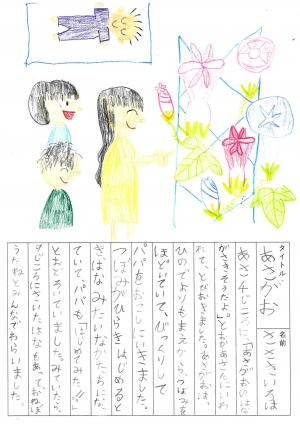 タイトル
あさがお
名前
ささきいろは
あさ4じごろに、「あさがおのはな
がさきそうだよ。」とおかあさんにいわ
れて、とびおきました。あさがおは、
ひのでよりもまえから、つぼみを
ほどいていて、びっくりして
パパをおこしにいきました。
つぼみがひらきはじめると
きはなみたいなかたちにな
っていて、パパも「はじめてみた!!」
とおどろいていました。みていたら、
じごろにさいたはなもあって、おねぼ
うだねとみんなでわらいました。